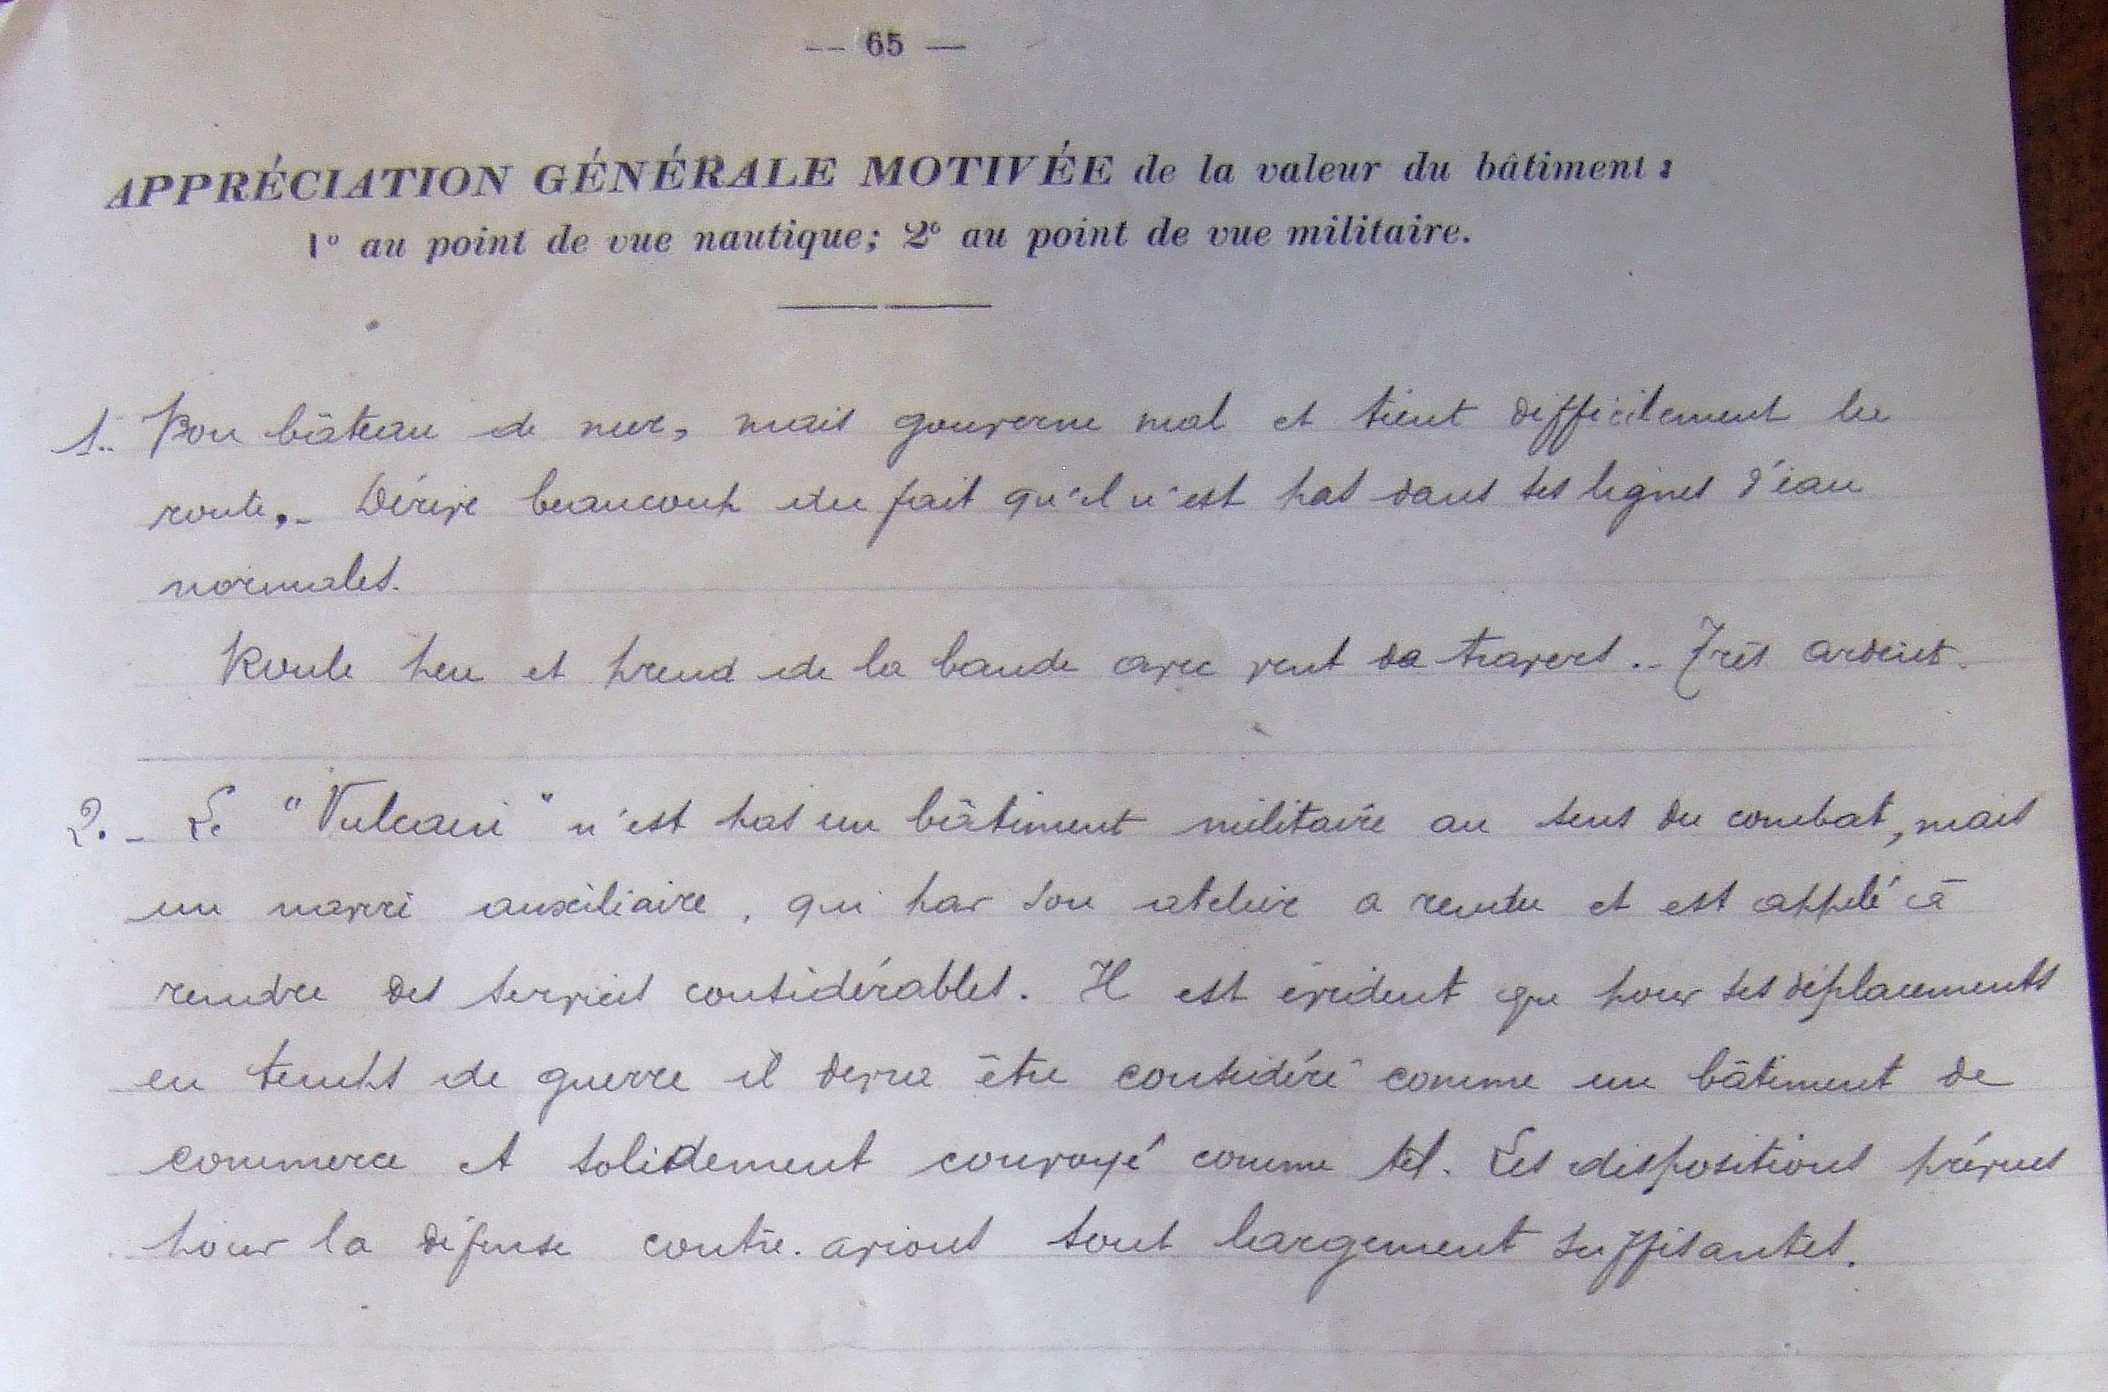 — 65 —
APPRÉCIATION GÉNÉRALE MOTIVÉE de la valeur du bâtiment :
1° au point de vue nautique; 2° au point de vue militaire.
1.. Bon bâteau de mer, mais gouverne mal et tient difficilement la
route.- Dérive beaucoup du fait qu'il n'est pas dans ses lignes d'eau
normales.
Roule peu et prend de la bande avec vent de travers.- Très ardent.
2.- Le "Vulcain" n'est pas un bâtiment militaire au sens du combat, mais
un navire auxiliaire, qui par son atelier a rendu et est appelé à
rendre des services considérables. Il est évident que pour ses déplacements
en temps de guerre il devra être considéré comme un bâtiment de
commerce et solidement convoyé comme tel. Les dispositions prévues
pour la défense contre-avions sont largement suffisantes.